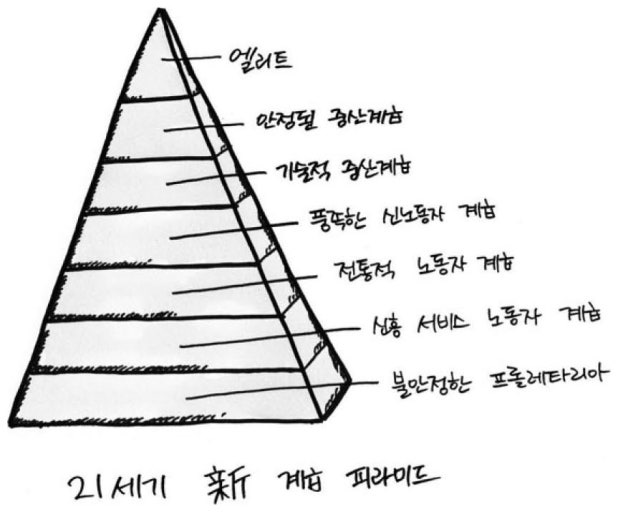 엘리트
안정된 중산계급
기술적 중산계급
풍족한 신노동자 계급
전통적 노동자 계급
신흥 서비스 노동자 계급
불안정한 프롤레타리아
21세기 新 계급 피라미드